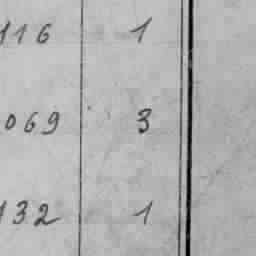 116 1
069 3
132 1